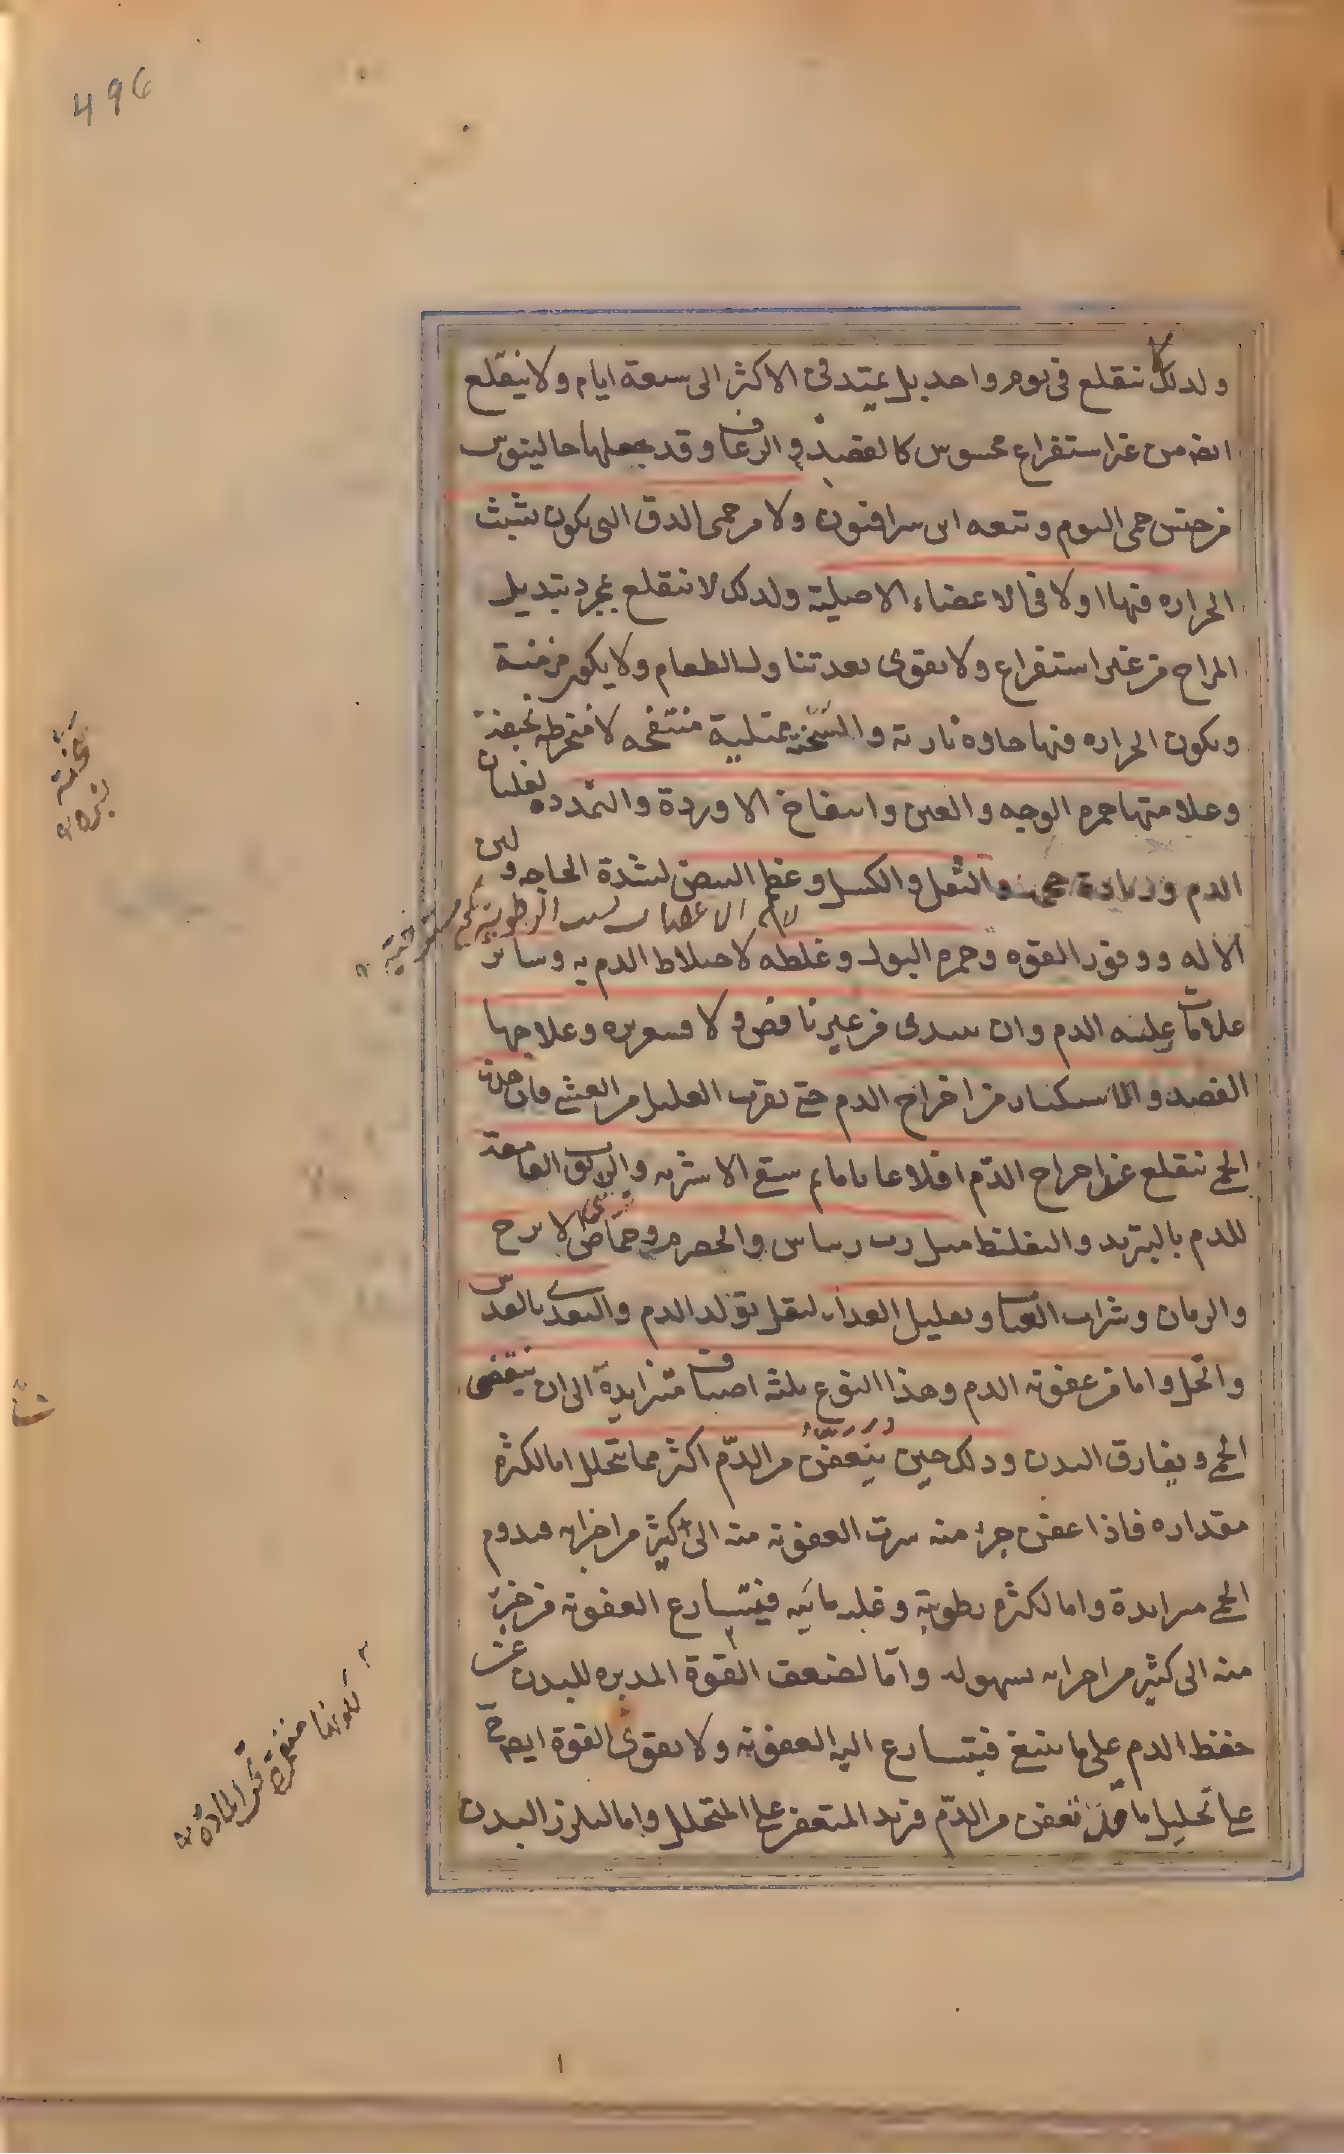 496
ولذلك لا تنقلع فى يوم واحد بل يمتد فى الاكثر الى سبعة ايام ولا ينقلع
ايضا من غير استفراغ محسوس كالفصد و الرعاف وقد جعلها جالينوس
من جنس حمى اليوم وتبعه ابن سرافيون ولا من حمى الدق التى يكون تشبث
الحرارة فيها اولا فى الاعضاء الاصلية ولذلك لا تنقلع بمجرد تبديل
المزاج من غير استفراغ ولا يقوى بعد تناول الطعام ولا يكون مزمنة
ويكون الحرارة فيها حادة نارية والسحنة ممتلية منتفخه لا منخرطة نحيفة
وعلامتها حمرة الوجه و العين وانتفاخ الاوردة والتمدد لغليان
الدم والثقل و الكسل وعظم النبض لشدة الحاجه و لين
الالة ووفور القوة وحمرة البول وغلظه لاختلاط الدم به وسائر
علامات غلبة الدم وان يبتدى من غير نافض و لا قشعريرة وعلاجها
الفصد و الاستكثار من اخراج الدم حتى يقرب العليل من الغشى فان هذه
الحمى تنقلع عند اخراج الدم اقلاعا تاما ثم سقى الاشربه والربوب القامعة
للدم بالتبريد والتغليظ مثل رب ريباس والحصرم وحماض الاترج
والرمان وشراب العناب و تقليل الغذاء ليقل تولد الدم والتغذى بالعدس
والخل واما من عفونة الدم وهذا النوع ثلثة اصناف متزايدة الى ان ينقضى
الحمى و يفارق البدن وذلك حين يتعفن من الدم اكثر مما يتحلل اما لكثرة
مقداره فاذا عفن جزء منه سرت العفونة منه الى كثير من اجزائه فيدوم
الحمى متزايدة واما لكثرة رطوبته و غلبة مائيه فيتسارع العفونة من جزء
منه الى كثير من اجزائه بسهولة واما لضعف القوة المدبرة للبدن عن
حفظ الدم على ما ينبغى فيتسارع اليه العفونة ولا يقوى القوة ايضا
على تحليل ما قد تعفن من الدم فيزيد المتعفن على المتحلل واما لتلزز البدن